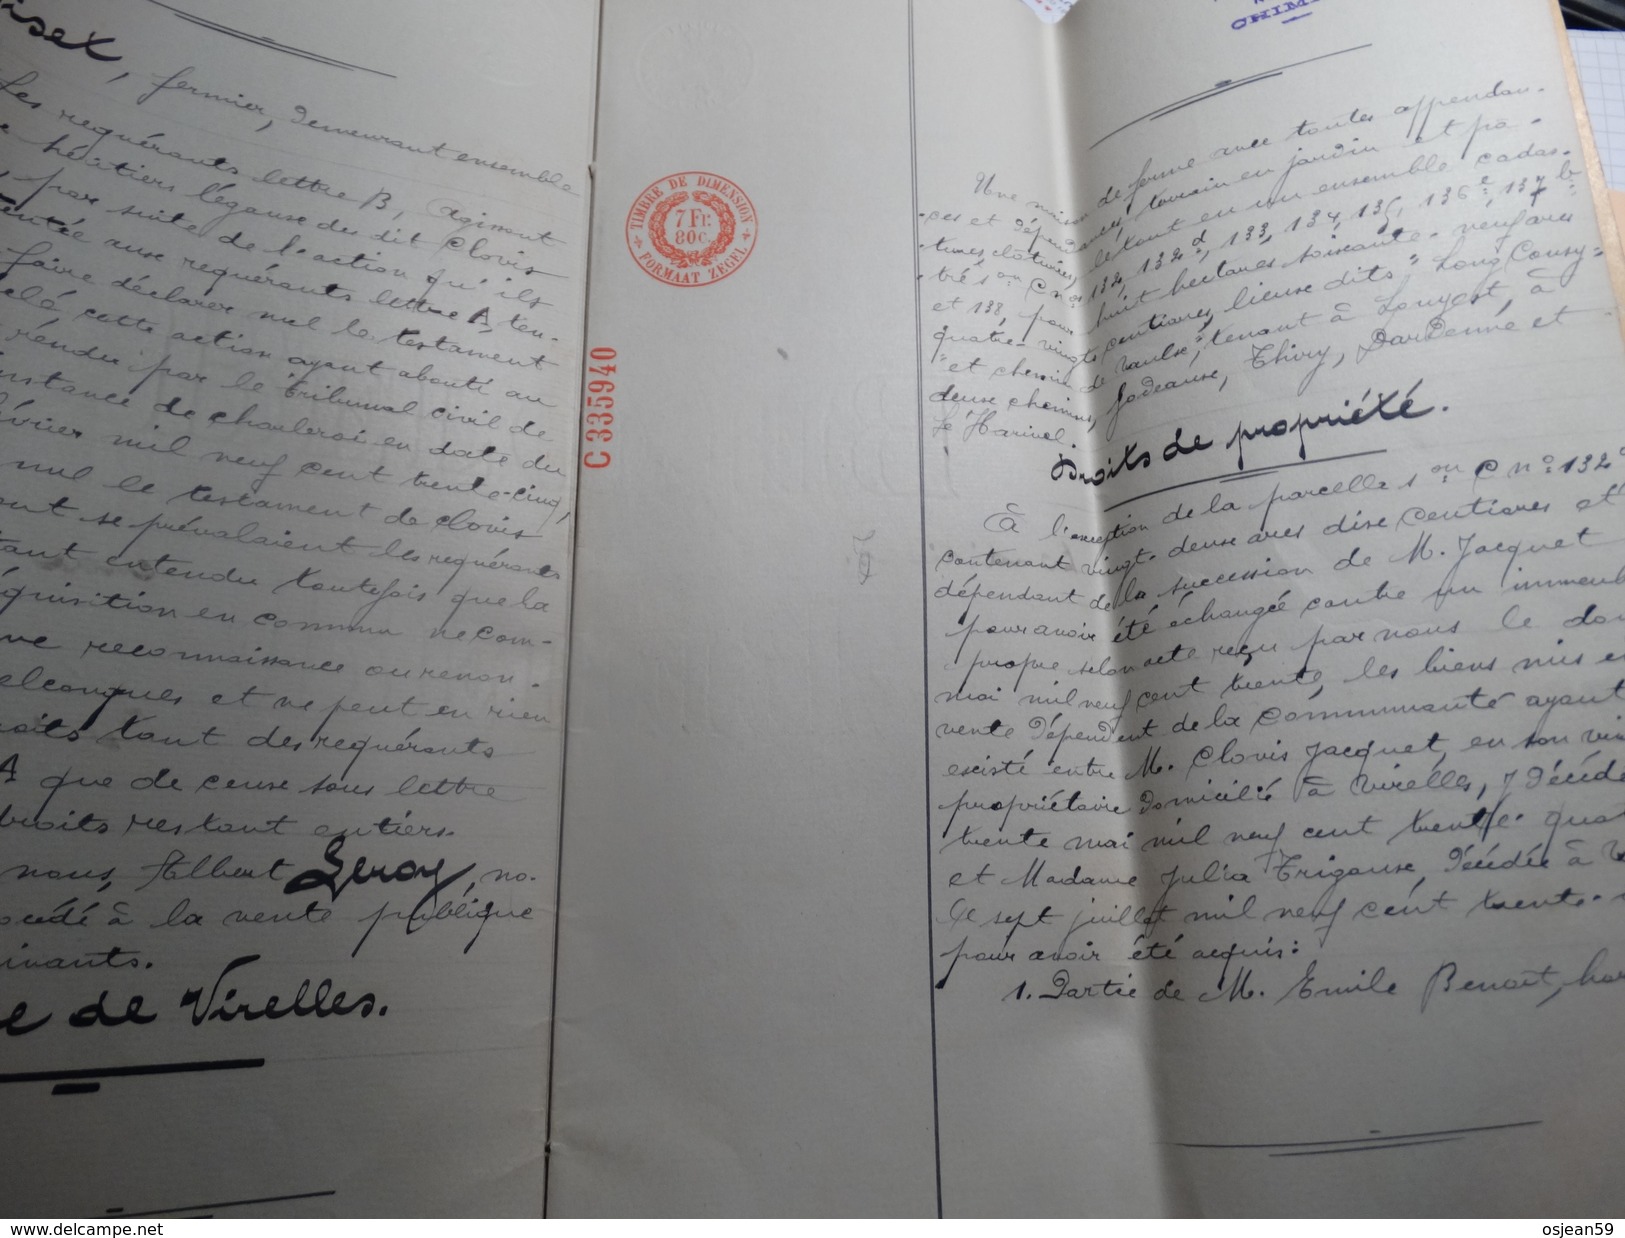 fermier, demeurant ensemble
Les requérants lettre B, agissant
héritiers légaux du dit Clovis
par suite de l'action qu'ils
tentée aux requérants lettre A, ten-
faire déclarer nul le testament
cette action ayant abouti au
rendu par le Tribunal civil de
instance de charleroi en date du
février mil neuf cent trente-cinq,
nul le testament de Clovis
dont se prévalaient les requérants
étant entendu toutefois que la
réquisition en commun ne com-
une reconnaissance ou renon-
quelconques et ne peut en rien
droits tant des requérants
A que de ceux sous lettre
droits restant entiers.
nous, Albert Leroy, no-
procédé à la vente publique
suivants.
de Virelles.
TIMBRE DE DIMENSION
7 Fr.
80 c.
FORMAAT ZEGEL
C 335940
CHIM
Une maison de ferme avec toutes appendan-
ces et dépendances, terrain en jardin et pâ-
tures, clôturées, le tout en un ensemble cadas-
tré son C nos 132, 132d, 133, 134, 135, 136e, 137b
et 138, pour huit hectares soixante-neuf ares
quatre-vingts centiares, lieux dits "Long Cousy"
"et chemin de Vaulx", tenant à Longest, à
deux chemins, Jadeaux, Thiry, Dardenne et
Le Harivel.
Droits de propriété.
A l'exception de la parcelle son C no 132d
contenant vingt-deux ares dix centiares et
dépendant de la succession de M. Jacquet
pour avoir été échangée contre un immeuble
propre selon acte reçu par nous le dou
mai mil neuf cent trente, les biens mis en
vente dépendent de la communauté ayant
existé entre M. Clovis Jacquet, en son viv
propriétaire domicilié à Virelles, y décédé
trente mai mil neuf cent trente-quat
et Madame Julia Trigaux, décédée à V
le sept juillet mil neuf cent trente-
pour avoir été acquis:
1. Partie de M. Emile Benoit,
www.delcampe.net
osjean59